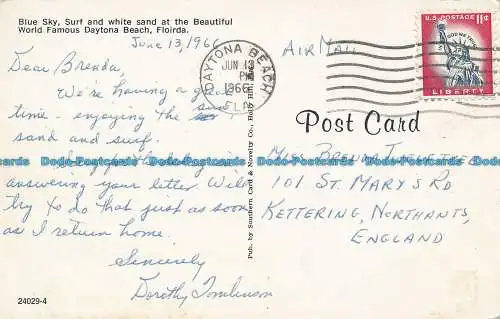 Blue Sky, Surf and white sand at the Beautiful
World Famous Daytona Beach, Floirda.
June 13, 1966
Dear Brenda,
We're having a great
time - enjoying the sun,
sand and surf.
answering your letter. Will
try to do that just as soon
as I return home.
Sincerely
Dorothy Tomlinson
24029-4
Pub. by Southern Card & Novelty Co., Holly Hill,
DAYTONA BEACH
JUN 13
PM
1966
FLA
AIR MAIL
U.S. POSTAGE 11¢
IN GOD WE TRUST
LIBERTY
Post Card
Miss Brenda
101 ST. MARY'S RD
KETTERING, NORTHANTS,
ENGLAND
Dodo-Postcards Dodo-Postcards Dodo-Postcards Dodo-Postcards Dodo-Postcards